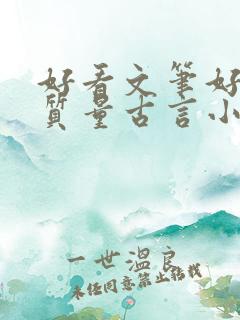 好看文笔好
质量古言小
一世温良
未经同意禁止转载